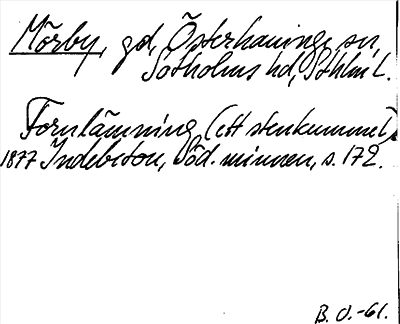 Mörby, gd, Österhaninge sn,
Sotholms hd, Sthlm l.
Fornlämning (ett stenkummel).
1877 Indebetou, Söd. minnen, s. 172.
B. O. -61.